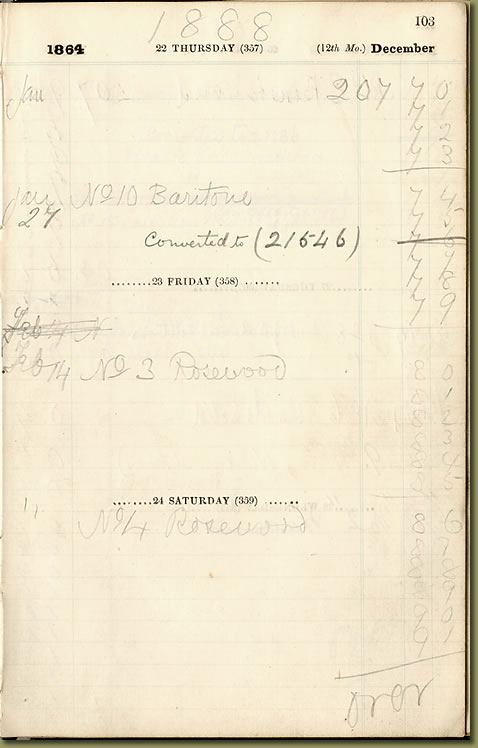 1888
103
1864 22 THURSDAY (357) (12th Mo.) December
Jan 207 7 0
7 1
7 2
7 3
Jan No 10 Baritone 7 4
27 7 5
Converted to (21546) 7 6
7 7
........23 FRIDAY (358) ....... 7 8
7 9
Feb 14 N
Feb 14 No 3 Rosewood 8 0
8 1
8 2
8 3
8 4
8 5
........24 SATURDAY (359) .......
" No 4 Rosewood 8 6
8 7
8 8
8 9
9 0
9 1
Over